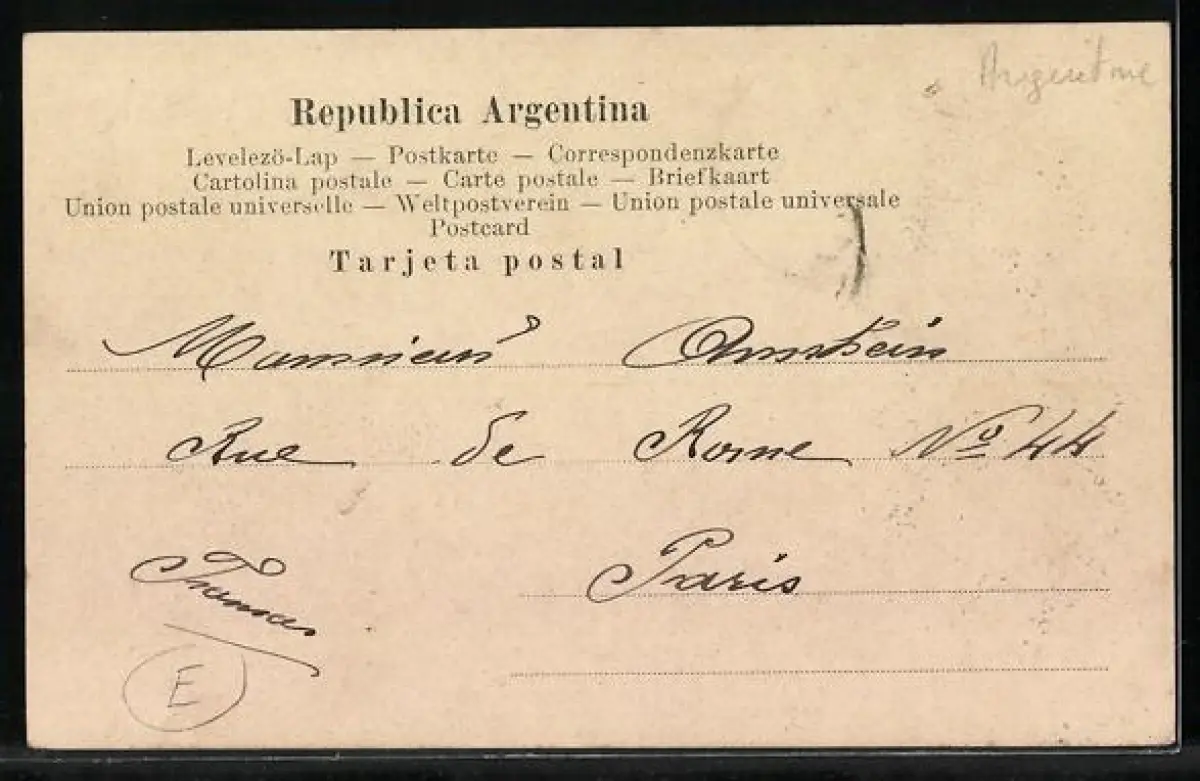 Argentine
Republica Argentina
Levelezö-Lap — Postkarte — Correspondenzkarte
Cartolina postale — Carte postale — Briefkaart
Union postale universelle — Weltpostverein — Union postale universale
Postcard
Tarjeta postal
Monsieur
Rue de Rome Nº 44
Paris
E